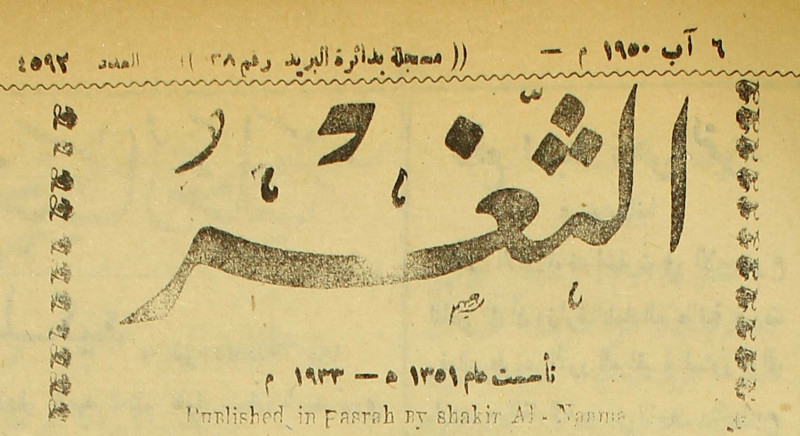 ٦ آب ١٩٥٠ م — (( مسجلة بدائرة البريد رقم ٣٨ )) العدد ٤٥٩٢
الثغر
تأسست عام ١٣٥١ ه — ١٩٣٣ م
Published in Basrah By shakir Al - Naama